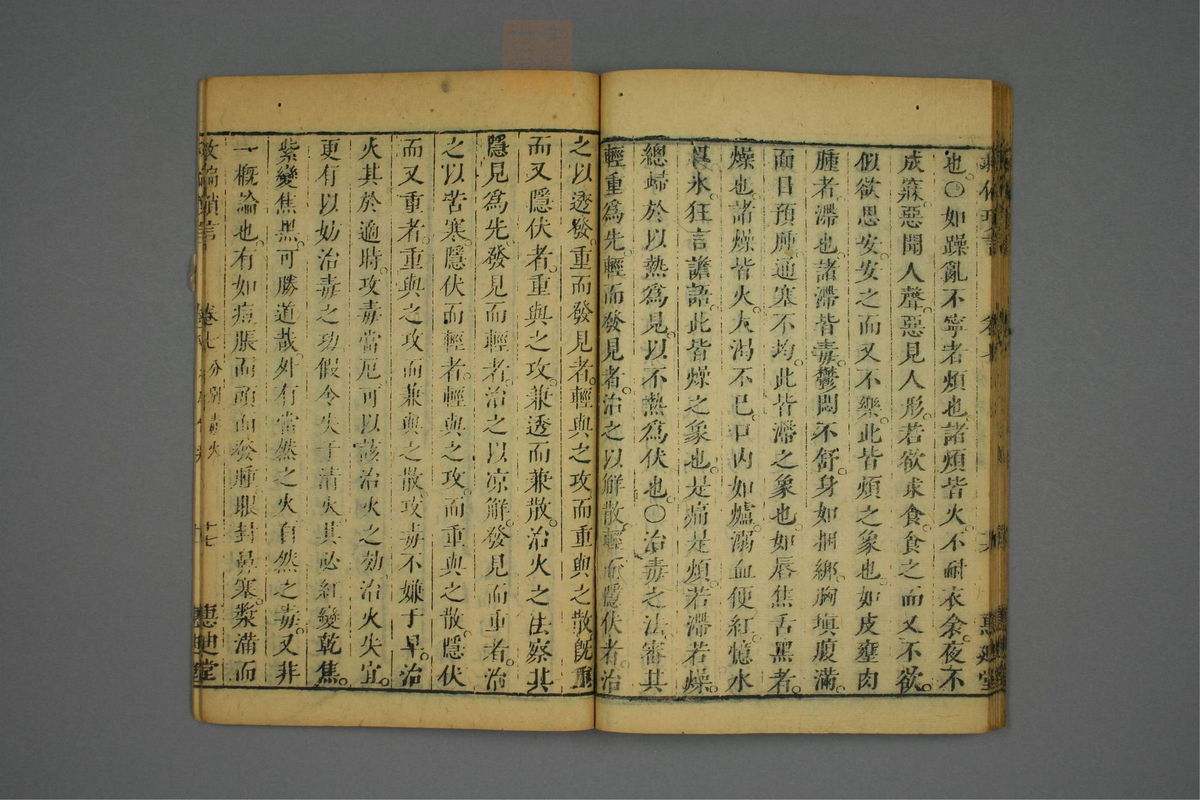 也○如躁亂不寧者煩也諸煩皆火不耐衣衾夜不
成寐惡聞人聲惡見人形若欲求食食之而又不欲
似欲思安安之而又不樂此皆煩之象也如皮壅肉
腫者滯也諸滯皆毒鬱悶不舒身如捆綁胸塡腹滿
面目預腫通塞不均此皆滯之象也如唇焦舌黑者
燥也諸燥皆火大渴不已口內如爐溺血便紅憶水
冰狂言譫語此皆燥之象也是痛是煩若滯若燥
總歸於以熱爲見以不熱爲伏也○治毒之法審其
輕重爲先輕而發見者治之以解散輕而隱伏者治
之以透發重而發見者輕與之攻而重與之散旣重
而又隱伏者重與之攻兼透而兼散治火之法察其
隱見爲先發見而輕者治之以凉解發見而重者治
之以苦寒隱伏而輕者輕與之攻而重與之散隱伏
而又重者重與之攻而兼與之散攻毒不嫌于早治
火其於適時攻毒當厄可以該治火之効治火失宜
更有以妨治毒之功假令失于清火其必紅變乾焦
紫變焦黑可勝道哉外有當然之火自然之毒又非
一概論也有如痘脹而頭面發腫眼封鼻塞漿滿而
卷七 分別毒火 惠迪堂